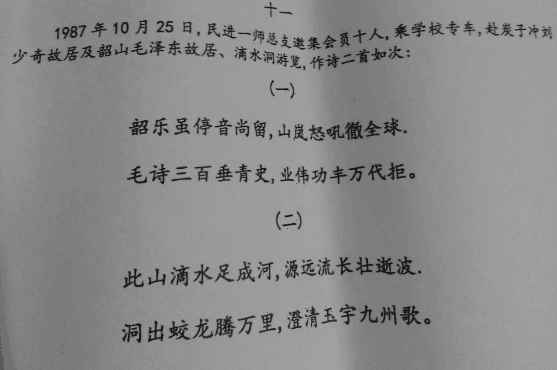 十一
1987年10月25日,民进一师总支邀集会员十人,乘学校专车,赴炭子冲刘
少奇故居及韶山毛泽东故居、滴水洞游览,作诗二首如次:
(一)
韶乐虽停音尚留,山岚怒吼徹全球.
毛诗三百垂青史,业伟功丰万代拒。
(二)
此山滴水足成河,源远流长壮逝波.
洞出蛟龙腾万里,澄清玉宇九州歌。